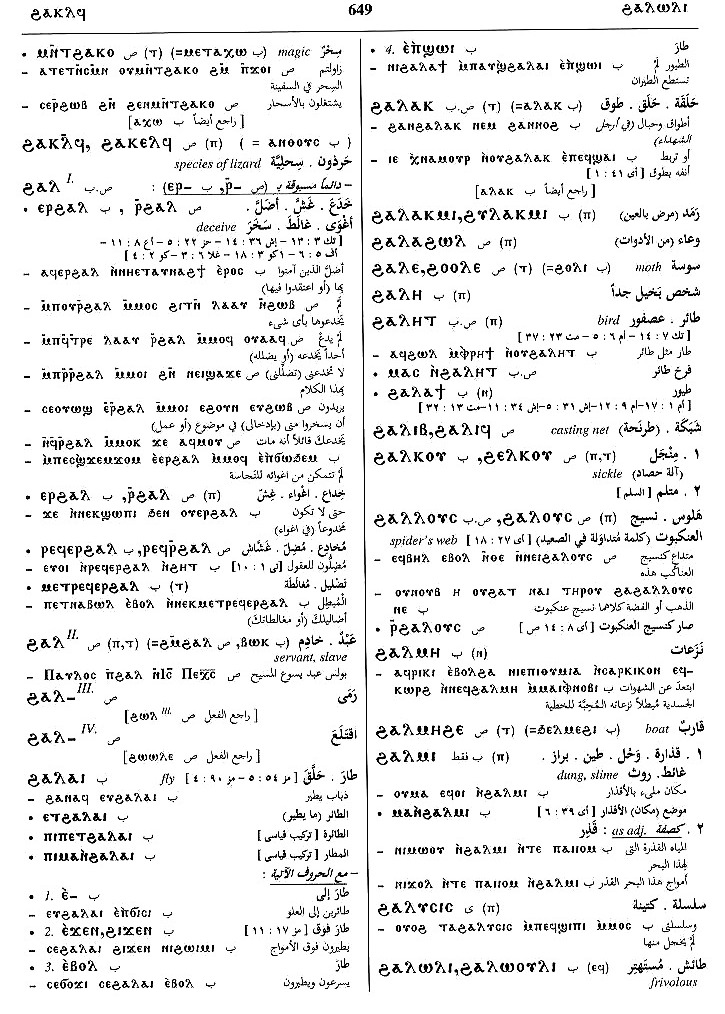 ϩⲁⲕⲗϥ 649 ϩⲁⲗⲱⲗⲓ
• ⲙⲛ̄ⲧϩⲁⲕⲟ (ⲧ) ص (=ⲙⲉⲧⲁⲭⲱ ب) magic سِحْرٌ
– ⲁⲧⲉⲧⲛ̄ⲥⲙ̄ⲛ ⲟⲩⲙⲛ̄ⲧϩⲁⲕⲟ ϩⲙ̄ ⲡϫⲟⲓ ص زاولتم
السِحر في السفينة
– ⲥⲉⲣ̄ϩⲱⲃ ϩⲛ̄ ϩⲉⲛⲙⲛ̄ⲧϩⲁⲕⲟ ص يشتغلون بالأسحار
[راجع أيضاً ب ⲁⲭⲱ]
ϩⲁⲕⲗ̄ϥ, ϩⲁⲕⲉⲗϥ (ⲡ) ص ( = ⲁⲛⲑⲟⲩⲥ ب )
species of lizard حَرْذون . سِحلِيَّة
ϩⲁⲗ I. ص.ب – دائماً مسبوقة بـ (ص ⲣ̄–, ب ⲉⲣ–) :
• ⲉⲣϩⲁⲗ ب, ⲣ̄ϩⲁⲗ ص خَدَعَ . غَشَّ . أضَلَّ .
deceive أغْوَى . غالَطَ . سَخَرَ
– ⲁϥⲉⲣϩⲁⲗ ⲛ̀ⲛⲏⲉⲧⲁⲩⲛⲁϩϯ ⲉ̀ⲣⲟⲥ ب أضلَّ الذين آمنوا
بها (أو اعتقدوا فيها)
– ⲙ̄ⲡⲟⲩⲣ̄ϩⲁⲗ ⲙ̄ⲙⲟⲥ ϩⲓⲧⲛ̄ ⲗⲁⲁⲩ ⲛ̄ϩⲱⲃ ص لم
يخدعوها بأى شىء
– ⲙ̄ⲡϥ̄ⲧⲣⲉ ⲗⲁⲁⲩ ⲣ̄ϩⲁⲗ ⲙ̄ⲙⲟϥ ⲟⲩⲁⲁϥ ص لم يدعْ
أحداً يخدعه (أو يضلله)
– ⲙ̄ⲡⲣ̄ⲣ̄ϩⲁⲗ ⲙ̄ⲙⲟⲓ ϩⲛ̄ ⲛⲉⲓϣⲁϫⲉ ص لا تخدعنى (تضللنى)
بهذا الكلام
– ⲥⲉⲟⲩⲱϣ ⲉ̀ⲣ̄ϩⲁⲗ ⲙ̄ⲙⲟⲓ ⲉϩⲟⲩⲛ ⲉⲩϩⲱⲃ ص يريدون
أن يسخروا منى (بإدخالى) في موضوع (أو عمل)
– ⲛ̄ϥⲣ̄ϩⲁⲗ ⲙ̄ⲙⲟⲕ ϫⲉ ⲁϥⲙⲟⲩ ص يخدعك قائلاً أنه مات
– ⲙ̀ⲡⲉⲥϣϫⲉⲙϫⲟⲙ ⲉ̀ⲉⲣϩⲁⲗ ⲙ̀ⲙⲟϥ ⲉ̀ⲡϭⲱϧⲉⲙ ب
لم تتمكن من اغوائه للنجاسة
• ⲉⲣϩⲁⲗ ب, ⲣ̄ϩⲁⲗ ص (ⲡ) خِداع . اغواء . غِشّ
– ϫⲉ ⲛ̀ⲛⲉⲕϣⲱⲡⲓ ϧⲉⲛ ⲟⲩⲉⲣϩⲁⲗ ب حتى لا تكون
مخدوعاً (في اغواء)
• ⲣⲉϥⲉⲣϩⲁⲗ ب, ⲣⲉϥⲣ̄ϩⲁⲗ ص مُخادِع . مُضِلّ . غَشَّاش
– ⲉⲩⲟⲓ ⲛ̀ⲣⲉϥⲉⲣϩⲁⲗ ⲛ̀ϩⲏⲧ ب مُضِلُّون للعقول [تى ١ : ١٠]
• ⲙⲉⲧⲣⲉϥⲉⲣϩⲁⲗ (ⲧ) ب تضليل . مُغالَطة
– ⲡⲉⲧⲛⲁⲃⲱⲗ ⲉ̀ⲃⲟⲗ ⲛ̀ⲛⲉⲕⲙⲉⲧⲣⲉϥⲉⲣϩⲁⲗ ب المُبطِل
أضاليلك (أو مغالطاتك)
ϩⲁⲗ II. (ⲡ,ⲧ) ص (=ϩⲙ̄ϩⲁⲗ ص, ⲃⲱⲕ ب) عَبْدٌ . خادِم
servant, slave
– Ⲡⲁⲩⲗⲟⲥ ⲡ̄ϩⲁⲗ ⲛ̄Ⲓ̄Ⲥ̄ Ⲡⲉⲭ̄ⲥ̄ ص بولس عبد يسوع المسيح
ϩⲁⲗ– III. ص رَمَى
[راجع الفعل ص ϩⲱⲗ III.]
ϩⲁⲗ– IV. ص اقتَلَعَ
[راجع الفعل ص ϩⲱⲱⲗⲉ]
ϩⲁⲗⲁⲓ ب fly طارَ . حَلَّقَ [مز ٥٤ : ٥ – مز ٩٠ : ٤]
– ϩⲁⲛⲁϥ ⲉⲩϩⲁⲗⲁⲓ ب ذباب يطير
• ⲉⲧϩⲁⲗⲁⲓ ب الطائر (ما يطير)
• ⲡⲓⲡⲉⲧϩⲁⲗⲁⲓ ب الطائرة [تركيب قياسى]
• ⲡⲓⲙⲁⲛ̀ϩⲁⲗⲁⲓ ب المطار [تركيب قياسى]
– مع الحروف الآتية :
• 1. ⲉ̀– ب طارَ إلى
– ⲉⲩϩⲁⲗⲁⲓ ⲉ̀ⲡϭⲓⲥⲓ ب طائرين إلى العلو
• 2. ⲉϫⲉⲛ,ϩⲓϫⲉⲛ ب طارَ فوق [مز ١٧ : ١١]
– ⲥⲉϩⲁⲗⲁⲓ ϩⲓϫⲉⲛ ⲛⲓϩⲱⲓⲙⲓ ب يطيرون فوق الأمواج
• 3. ⲉ̀ⲃⲟⲗ ب طارَ
– ⲥⲉϭⲟϫⲓ ⲥⲉϩⲁⲗⲁⲓ ⲉ̀ⲃⲟⲗ ب يسرعون ويطيرون
• 4. ⲉ̀ⲡϣⲱⲓ ب طارَ
– ⲛⲓϩⲁⲗⲁϯ ⲙ̀ⲡⲁⲩϣϩⲁⲗⲁⲓ ⲉ̀ⲡϣⲱⲓ ب الطيور لم
تستطع الطيران
ϩⲁⲗⲁⲕ ص.ب (ⲧ) (=ⲁⲗⲁⲕ ب) حَلَقَة . حَلَق . طوق
– ϩⲁⲛϩⲁⲗⲁⲕ ⲛⲉⲙ ϩⲁⲛⲛⲟϩ ب أطواق وحبال (في أرجل
الشهداء)
– ⲓⲉ ⲭⲛⲁⲙⲟⲩⲣ ⲛ̀ⲟⲩϩⲁⲗⲁⲕ ⲉ̀ⲡⲉϥϣⲁⲓ ب أو تربط
أنفه بطوق [أى ٤١ : ١]
[راجع أيضاً ب ⲁⲗⲁⲕ]
ϩⲁⲗⲁⲕⲙⲓ,ϩⲩⲗⲁⲕⲙⲓ (ⲡ) ب رَمَد (مرض بالعين)
ϩⲁⲗⲁϩⲱⲗ (ⲡ) ص وعاء (من الأدوات)
ϩⲁⲗⲉ,ϩⲟⲟⲗⲉ (ⲧ) ص (=ϩⲟⲗⲓ ب) moth سوسة
ϩⲁⲗⲏ (ⲡ) ب شخص بَخيل جداً
ϩⲁⲗⲏⲧ ص.ب (ⲡ) bird طائر . عصفور
[تك ٧ : ١٤ – ام ٦ : ٥ – مت ٢٣ : ٣٧]
– ⲁϥϩⲱⲗ ⲙ̀ⲫⲣⲏϯ ⲛ̀ⲟⲩϩⲁⲗⲏⲧ ب طار مثل طائر
• ⲙⲁⲥ ⲛ̀ϩⲁⲗⲏⲧ ص.ب فرخ طائر
• ϩⲁⲗⲁϯ (ⲛ) ب طيور
[ام ١ : ١٧ – ام ٩ : ١٢ – إش ٣١ : ٥ – إش ٣٤ : ١١ – مت ١٣ : ٣٢]
ϩⲁⲗⲓⲃ,ϩⲁⲗⲓϥ ص casting net شَبَكَة . (طرّحَة)
ϩⲁⲗⲕⲟⲩ ب, ϩⲉⲗⲕⲟⲩ (ⲡ,ⲧ) ص ١ . مِنْجَل
sickle (آلة حصاد)
٢ . متلم [السلم]
ϩⲁⲗⲗⲟⲩⲥ ص.ب, ϩⲁⲗⲟⲩⲥ (ⲡ) ص هَلوس . نسيج
spider's web العنكبوت (كلمة مُتداوَلة في الصعيد) [أى ٢٧ : ١٨]
– ⲉϥⲃⲏⲗ ⲉⲃⲟⲗ ⲛ̄ⲑⲉ ⲛ̄ⲛⲉⲓϩⲁⲗⲟⲩⲥ ص متداع كنسيج
العناكب هذه
– ⲟⲩⲛⲟⲩⲃ ⲏ ⲟⲩϩⲁⲧ ⲛⲁⲓ ⲧⲏⲣⲟⲩ ϩⲁϩⲁⲗⲗⲟⲩⲥ
ⲛⲉ ب الذهب أو الفضة كلاهما نسيج عنكبوت
• ⲣ̄ϩⲁⲗⲟⲩⲥ ص صار كنسيج العنكبوت [أى ٨ : ١٤ ص]
ϩⲁⲗⲙⲏ (ⲛ) ب نَزَعات
– ⲁϥⲣⲓⲕⲓ ⲉ̀ⲃⲟⲗϩⲁ ⲛⲓⲉⲡⲓⲑⲩⲙⲓⲁ ⲛ̀ⲥⲁⲣⲕⲓⲕⲟⲛ ⲉϥ–
ⲕⲱⲣϥ ⲛ̀ⲛⲉϥϩⲁⲗⲙⲏ ⲙ̀ⲙⲁⲓⲫⲛⲟⲃⲓ ب ابتعد عن الشهوات
الجسدية مُبطِلاً نزعاته المُحِبَّة للخطية
ϩⲁⲗⲙⲏϩⲉ (ⲧ) ص (=ϧⲉⲗⲙⲉϩⲓ ب) boat قاربٌ
ϩⲁⲗⲙⲓ (ⲡ) ب فقط ١ . قذارة . وَحْل . طين . براز .
dung, slime غائط . روث
– ⲟⲩⲙⲁ ⲉϥⲟⲓ ⲛ̀ϩⲁⲗⲙⲓ ب مكان ملىء بالأقذار
• ⲙⲁⲛ̀ϩⲁⲗⲙⲓ ب موضع (مكان) الأقذار [أى ٣٩ : ٦]
٢ . كصفة as adj. : قَذِر
– ⲛⲓⲙⲱⲟⲩ ⲛ̀ϩⲁⲗⲙⲓ ⲛ̀ⲧⲉ ⲡⲁⲓⲟⲙ ب المياه القذرة التى
لهذا البحر
– ⲛⲓϫⲟⲗ ⲛ̀ⲧⲉ ⲡⲁⲓⲟⲙ ⲛ̀ϩⲁⲗⲙⲓ ب أمواج هذا البحر القذر
ϩⲁⲗⲩⲥⲓⲥ ى (ⲡ) سلسلة . كتينة
– ⲟⲩⲟϩ ⲧⲁϩⲁⲗⲩⲥⲓⲥ ⲙ̀ⲡⲉϥϣⲓⲡⲓ ⲙ̀ⲙⲟⲥ ب وسلسلتى
لم يخجل منها
ϩⲁⲗⲱⲗⲓ,ϩⲁⲗⲱⲟⲩⲗⲓ ب (ⲉϥ) طائش . مُستَهتِر
frivolous